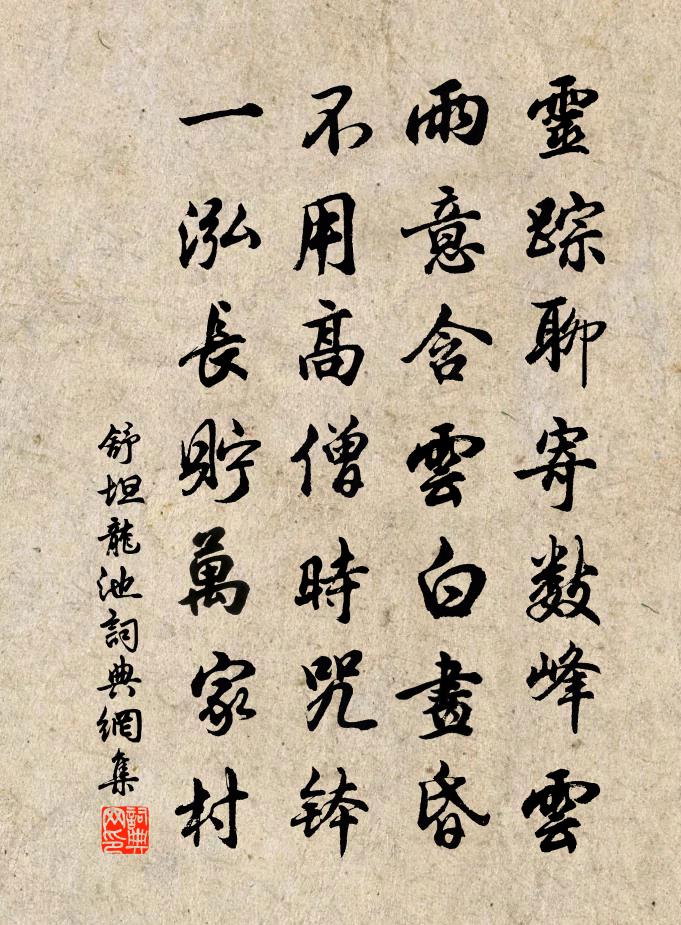 靈踪聊寄數峰雲
雨意含雲白晝昏
不用高僧時咒鉢
一泓長貯萬家村
舒坦龍池詞典網集
詞典网印